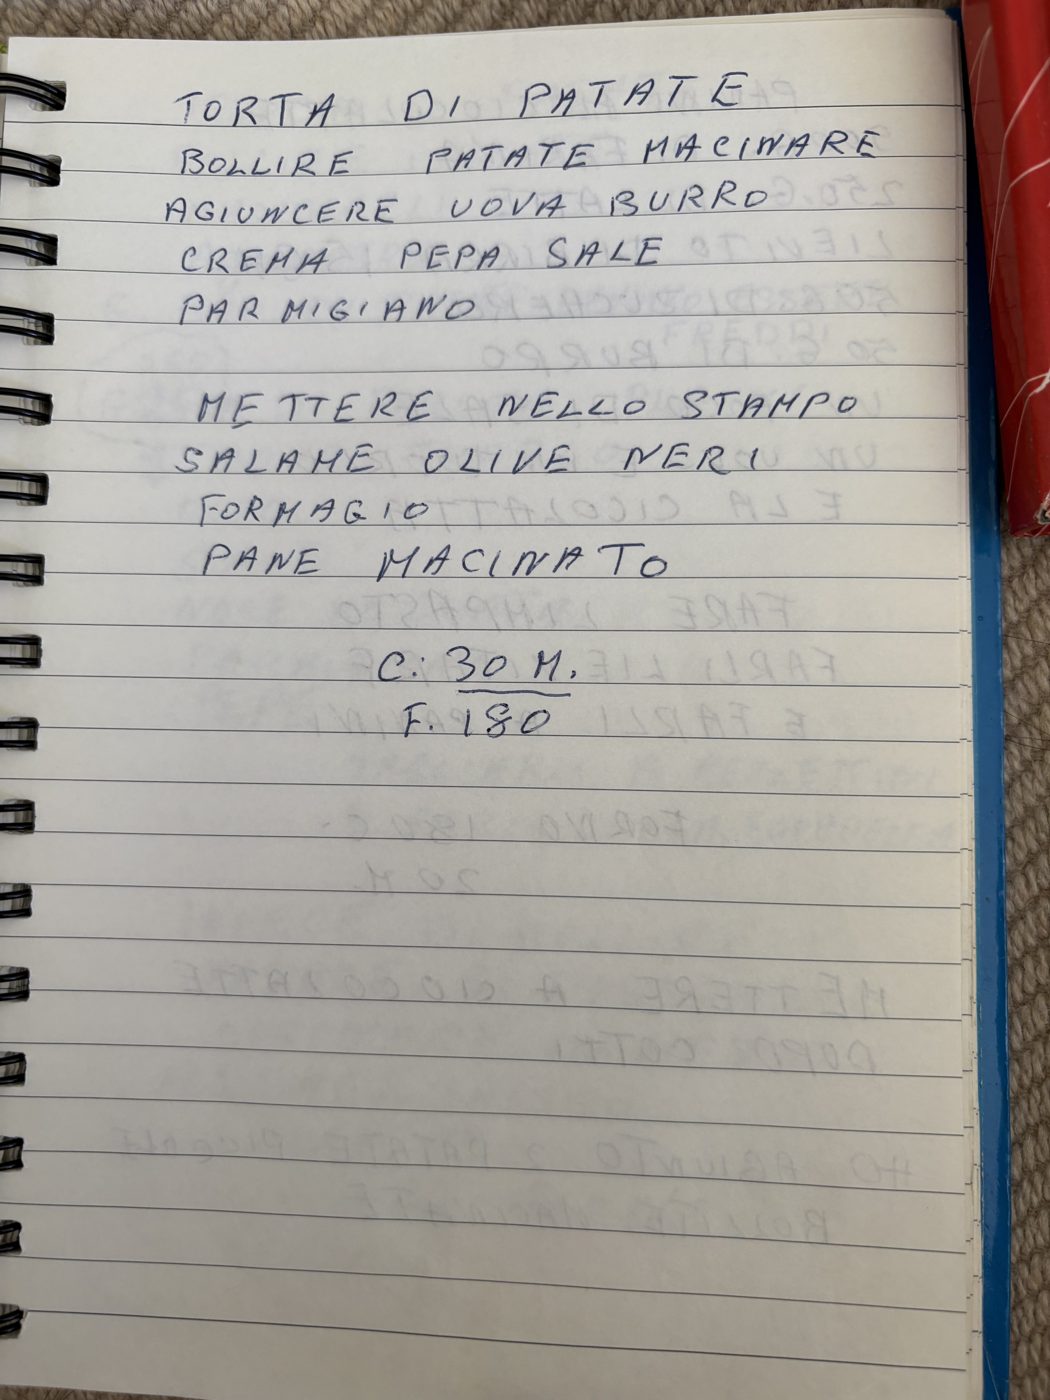 TORTA DI PATATE
BOLLIRE PATATE MACINARE
AGIUNCERE UOVA BURRO
CREMA PEPA SALE
PARMIGIANO
METTERE NELLO STAMPO
SALAME OLIVE NERI
FORMAGIO
PANE MACINATO
C: 30 M.
F. 180